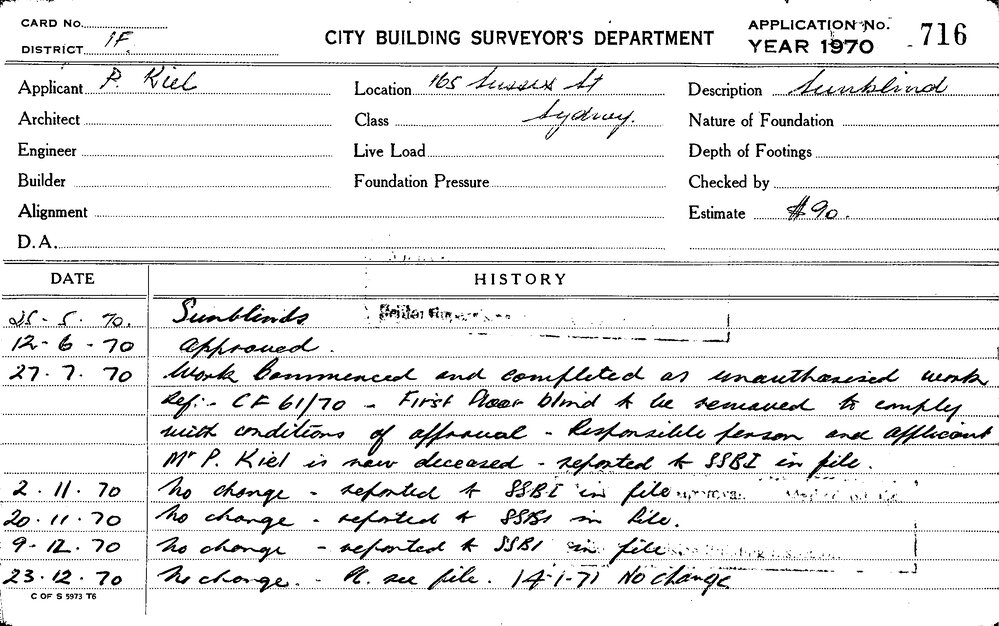 CARD No.
DISTRICT 1F
CITY BUILDING SURVEYOR'S DEPARTMENT
APPLICATION No. 716
YEAR 1970
Applicant P. Kiel
Location 165 Sussex St
Description Sunblind
Architect
Class Sydney.
Nature of Foundation
Engineer
Live Load
Depth of Footings
Builder
Foundation Pressure
Checked by
Alignment
Estimate $90.
D.A.
DATE HISTORY
25-5-70. Sunblinds
12-6-70 approved.
27.7.70 Work Commenced and completed as unauthorised work
Ref:- CF 61/70 - First Floor blind to be removed to comply
with conditions of approval - Responsible person and applicant
Mr P. Kiel is now deceased - reported to SSBI in file.
2.11.70 No change - reported to SSBI in file
20.11.70 No change - reported to SSBI in file.
9-12.70 No change - reported to SSBI in file
23.12.70 No change. - Pl. see file. 14-1-71 No change
C OF S 5973 T6